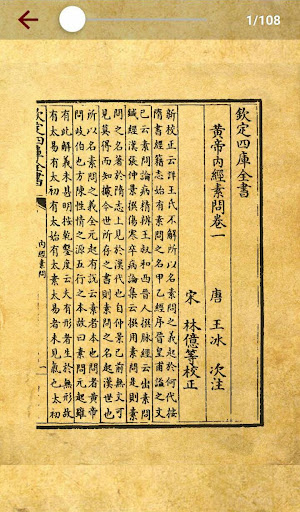 1/108
欽定四庫全書
黄帝内經素問卷一
唐 王冰 次注
宋 林億等校正
新校正云詳王氏不解所以名素問之義起於何代按
隋書經籍志始有素問之名甲乙經序晉皇甫謐之文
已云素問論病精辨王叔和西晉人撰脉經云出素問
鍼經漢張仲景撰傷寒卒病論集云撰用素問是則素
問之名著於隋志上見於漢代也自仲景已前無文可
見莫得而知據今世所存之書則素問之名起漢世也
所以名素問之義全元起有說云素者本也問者黄帝
問岐伯也方陳性情之源五行之本故曰素問元起雖
有此解義未甚明按乾鑿度云夫有形者生於無形故
有太易有太初有太始有太素太易者未見氣也太初
欽定四庫全書
内經素問